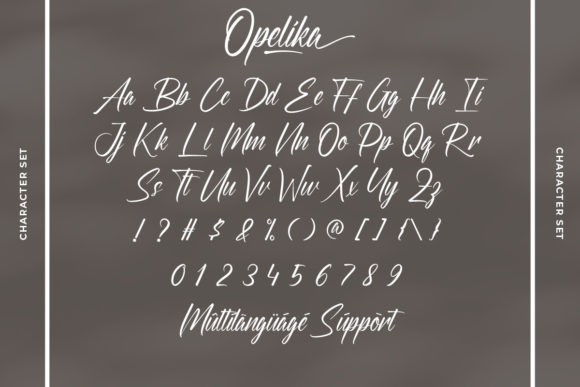 Opelika
Aa Bb Cc Dd Ee Ff Gg Hh Ii
Jj Kk Ll Mm Nn Oo Pp Qq Rr
Ss Tt Uu Vv Ww Xx Yy Zz
! ? # $ & % ( ) @ [ ] { \ }
0 1 2 3 4 5 6 7 8 9
Mûltîlàngüágé Súppòrt
CHARACTER SET
CHARACTER SET